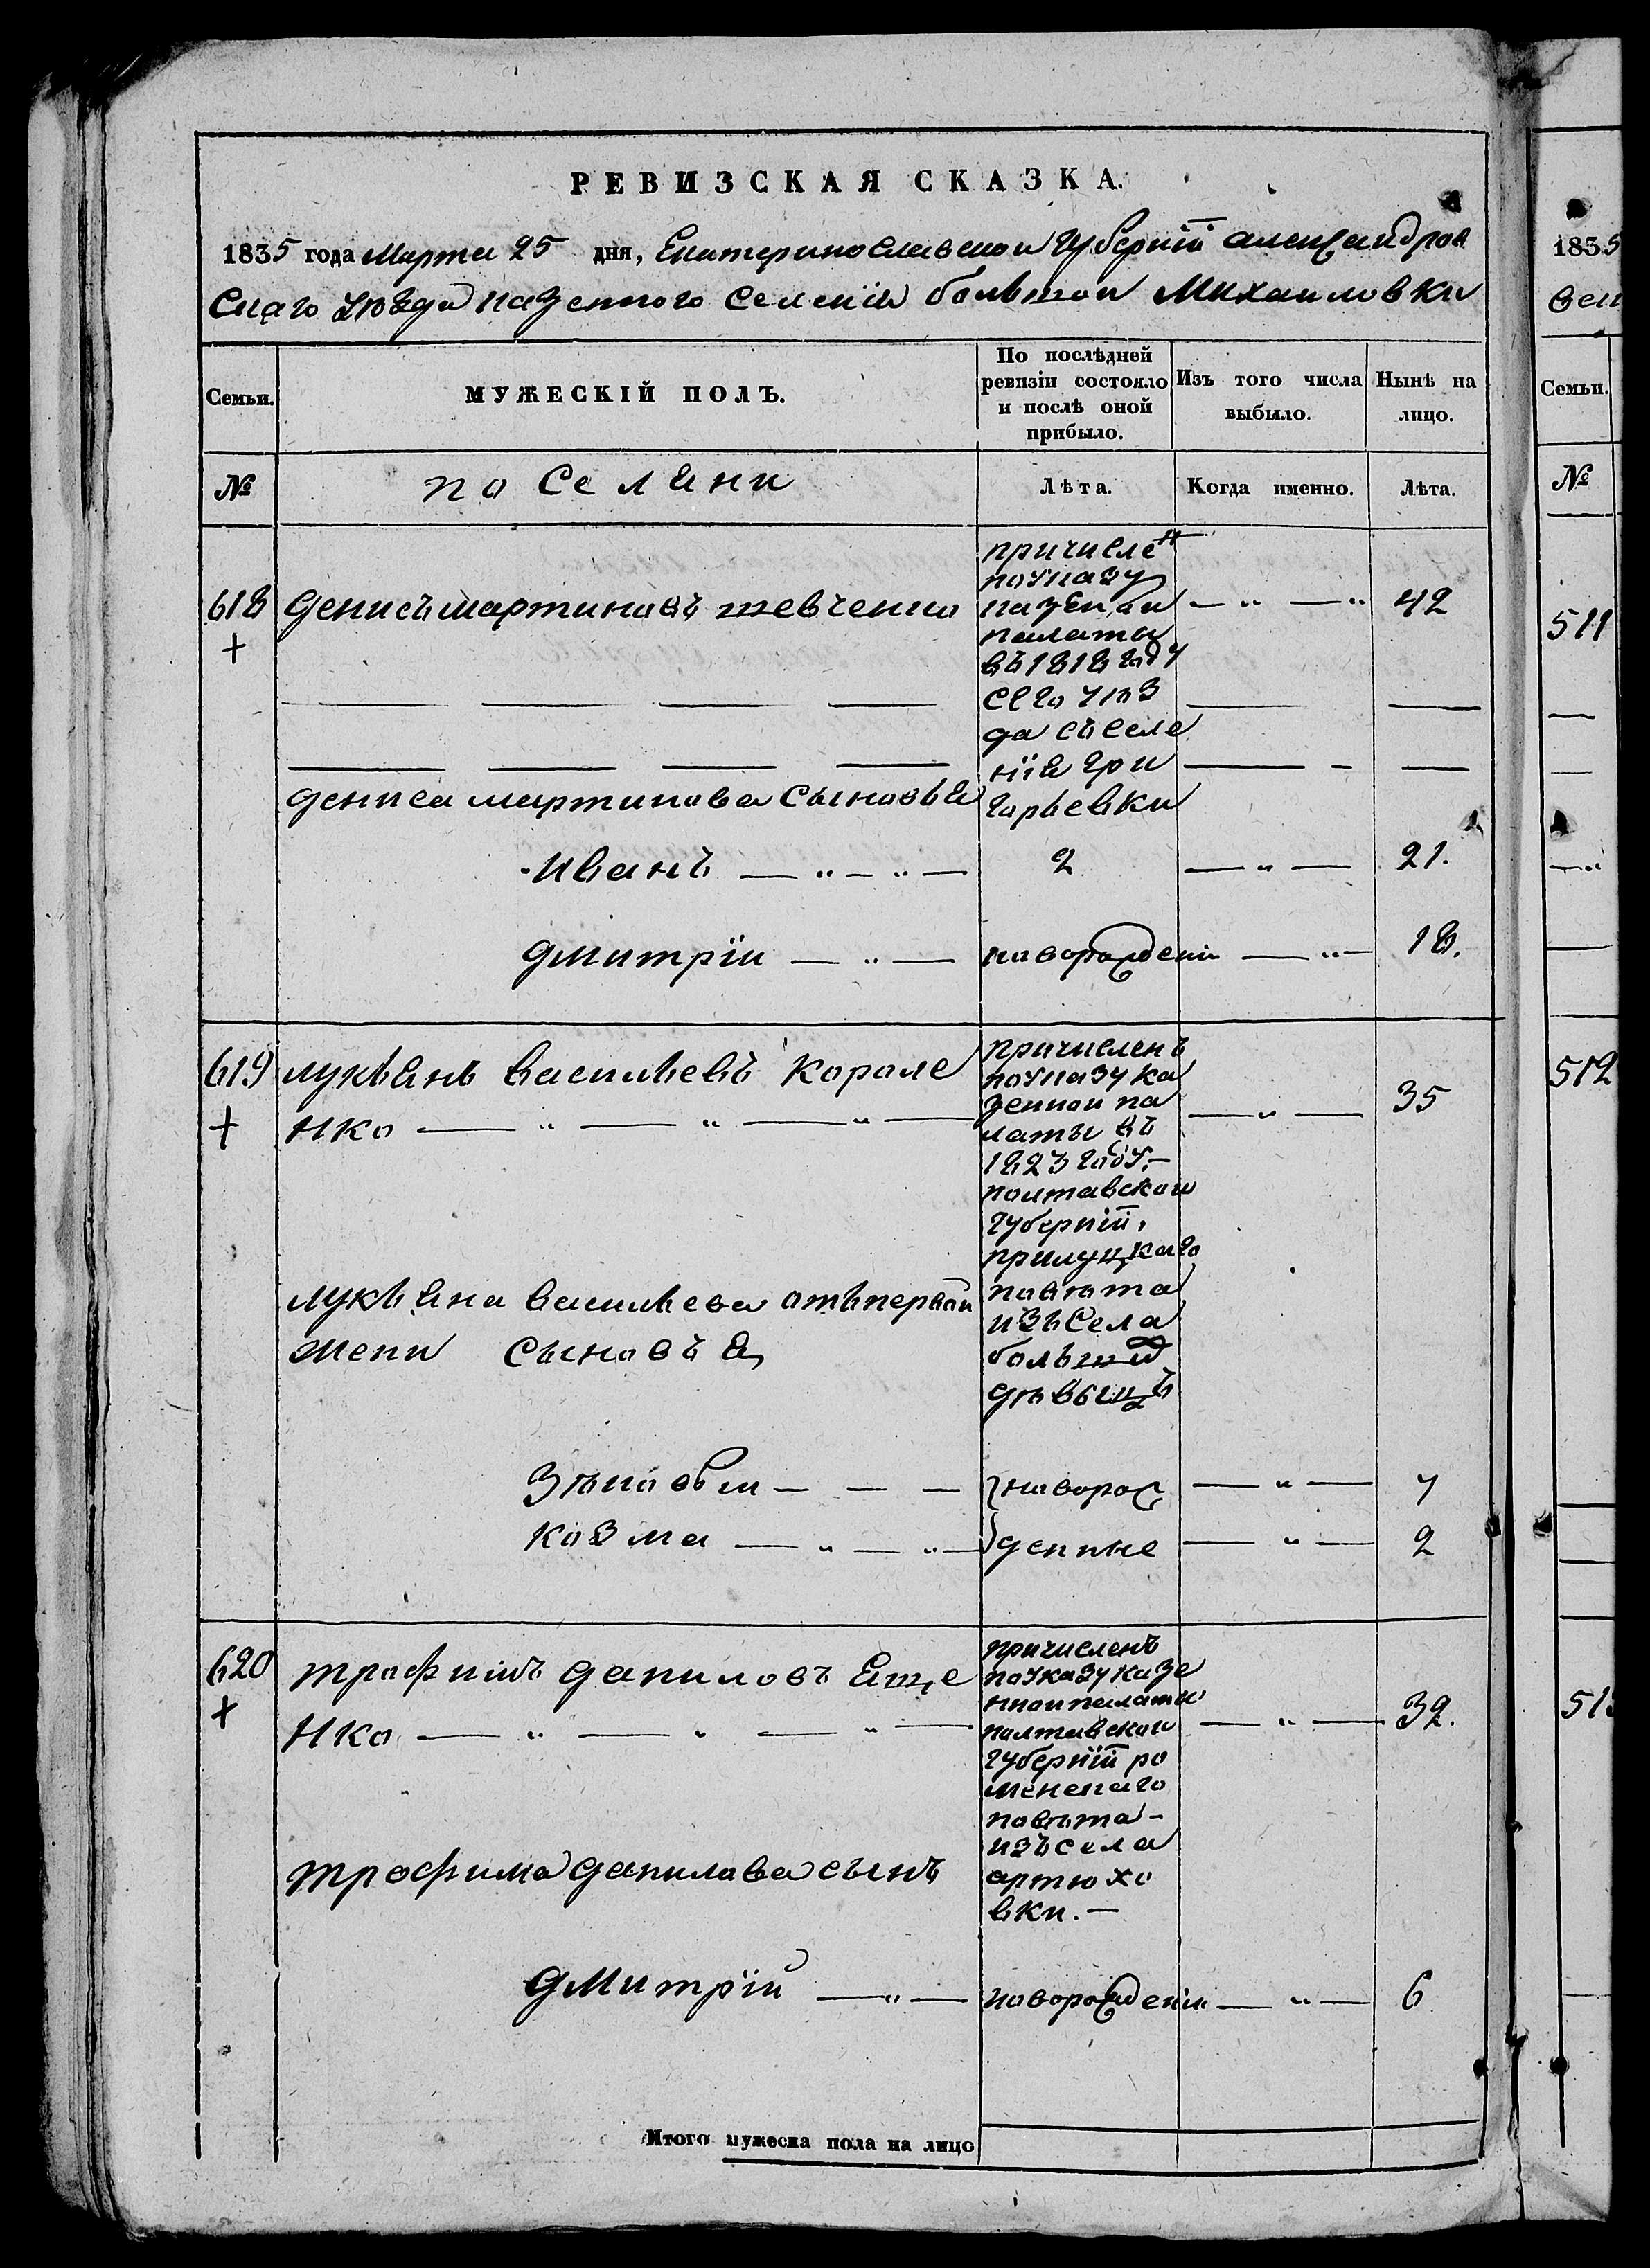 РЕВИЗСКАЯ СКАЗКА.
1835 года Марта 25 дня, Екатеринославской Губерніи александров
скаго уѣзда казенного Селенія большой Михаиловки
Семьи.
МУЖЕСКІЙ ПОЛЪ.
По послѣдней
ревизіи состояло
и послѣ оной
прибыло.
Изъ того числа
выбыло.
Нынѣ на
лицо.
№
поселяни
Лѣта.
Когда именно.
Лѣта.
618
+
Денисъ мартиновъ шевченко
причислен
по указу
казеной
палаты
въ 1818 году
сего уѣз
да съ селе
нія гри
горьевки
42
Дениса мартинова сыновья
Иванъ
2
21.
Дмитріи
новорожденн
18.
619
+
лукьянъ васильевъ короле
нко
причисленъ
по указу ка
зенной па
латы въ
1823 году.
полтавской
губерніи,
прилуцкаго
повѣта
изъ села
больший
дѣвыцъ
35
лукьяна васильева отъ первой
жени сыновъя
Зѣновѣи
новорож
7
козма
денные
2
620
+
трофимъ даниловъ яще
нко
причисленъ
по указу казе
нной палаты
полтавской
губерніи ро
менскаго
повѣта
изъ села
артюхо
вки.
32.
трофима данилова сынъ
Дмитрій
новорожденн
6
Итого мужеска пола на лицо
1835
Семьи.
№
511
512